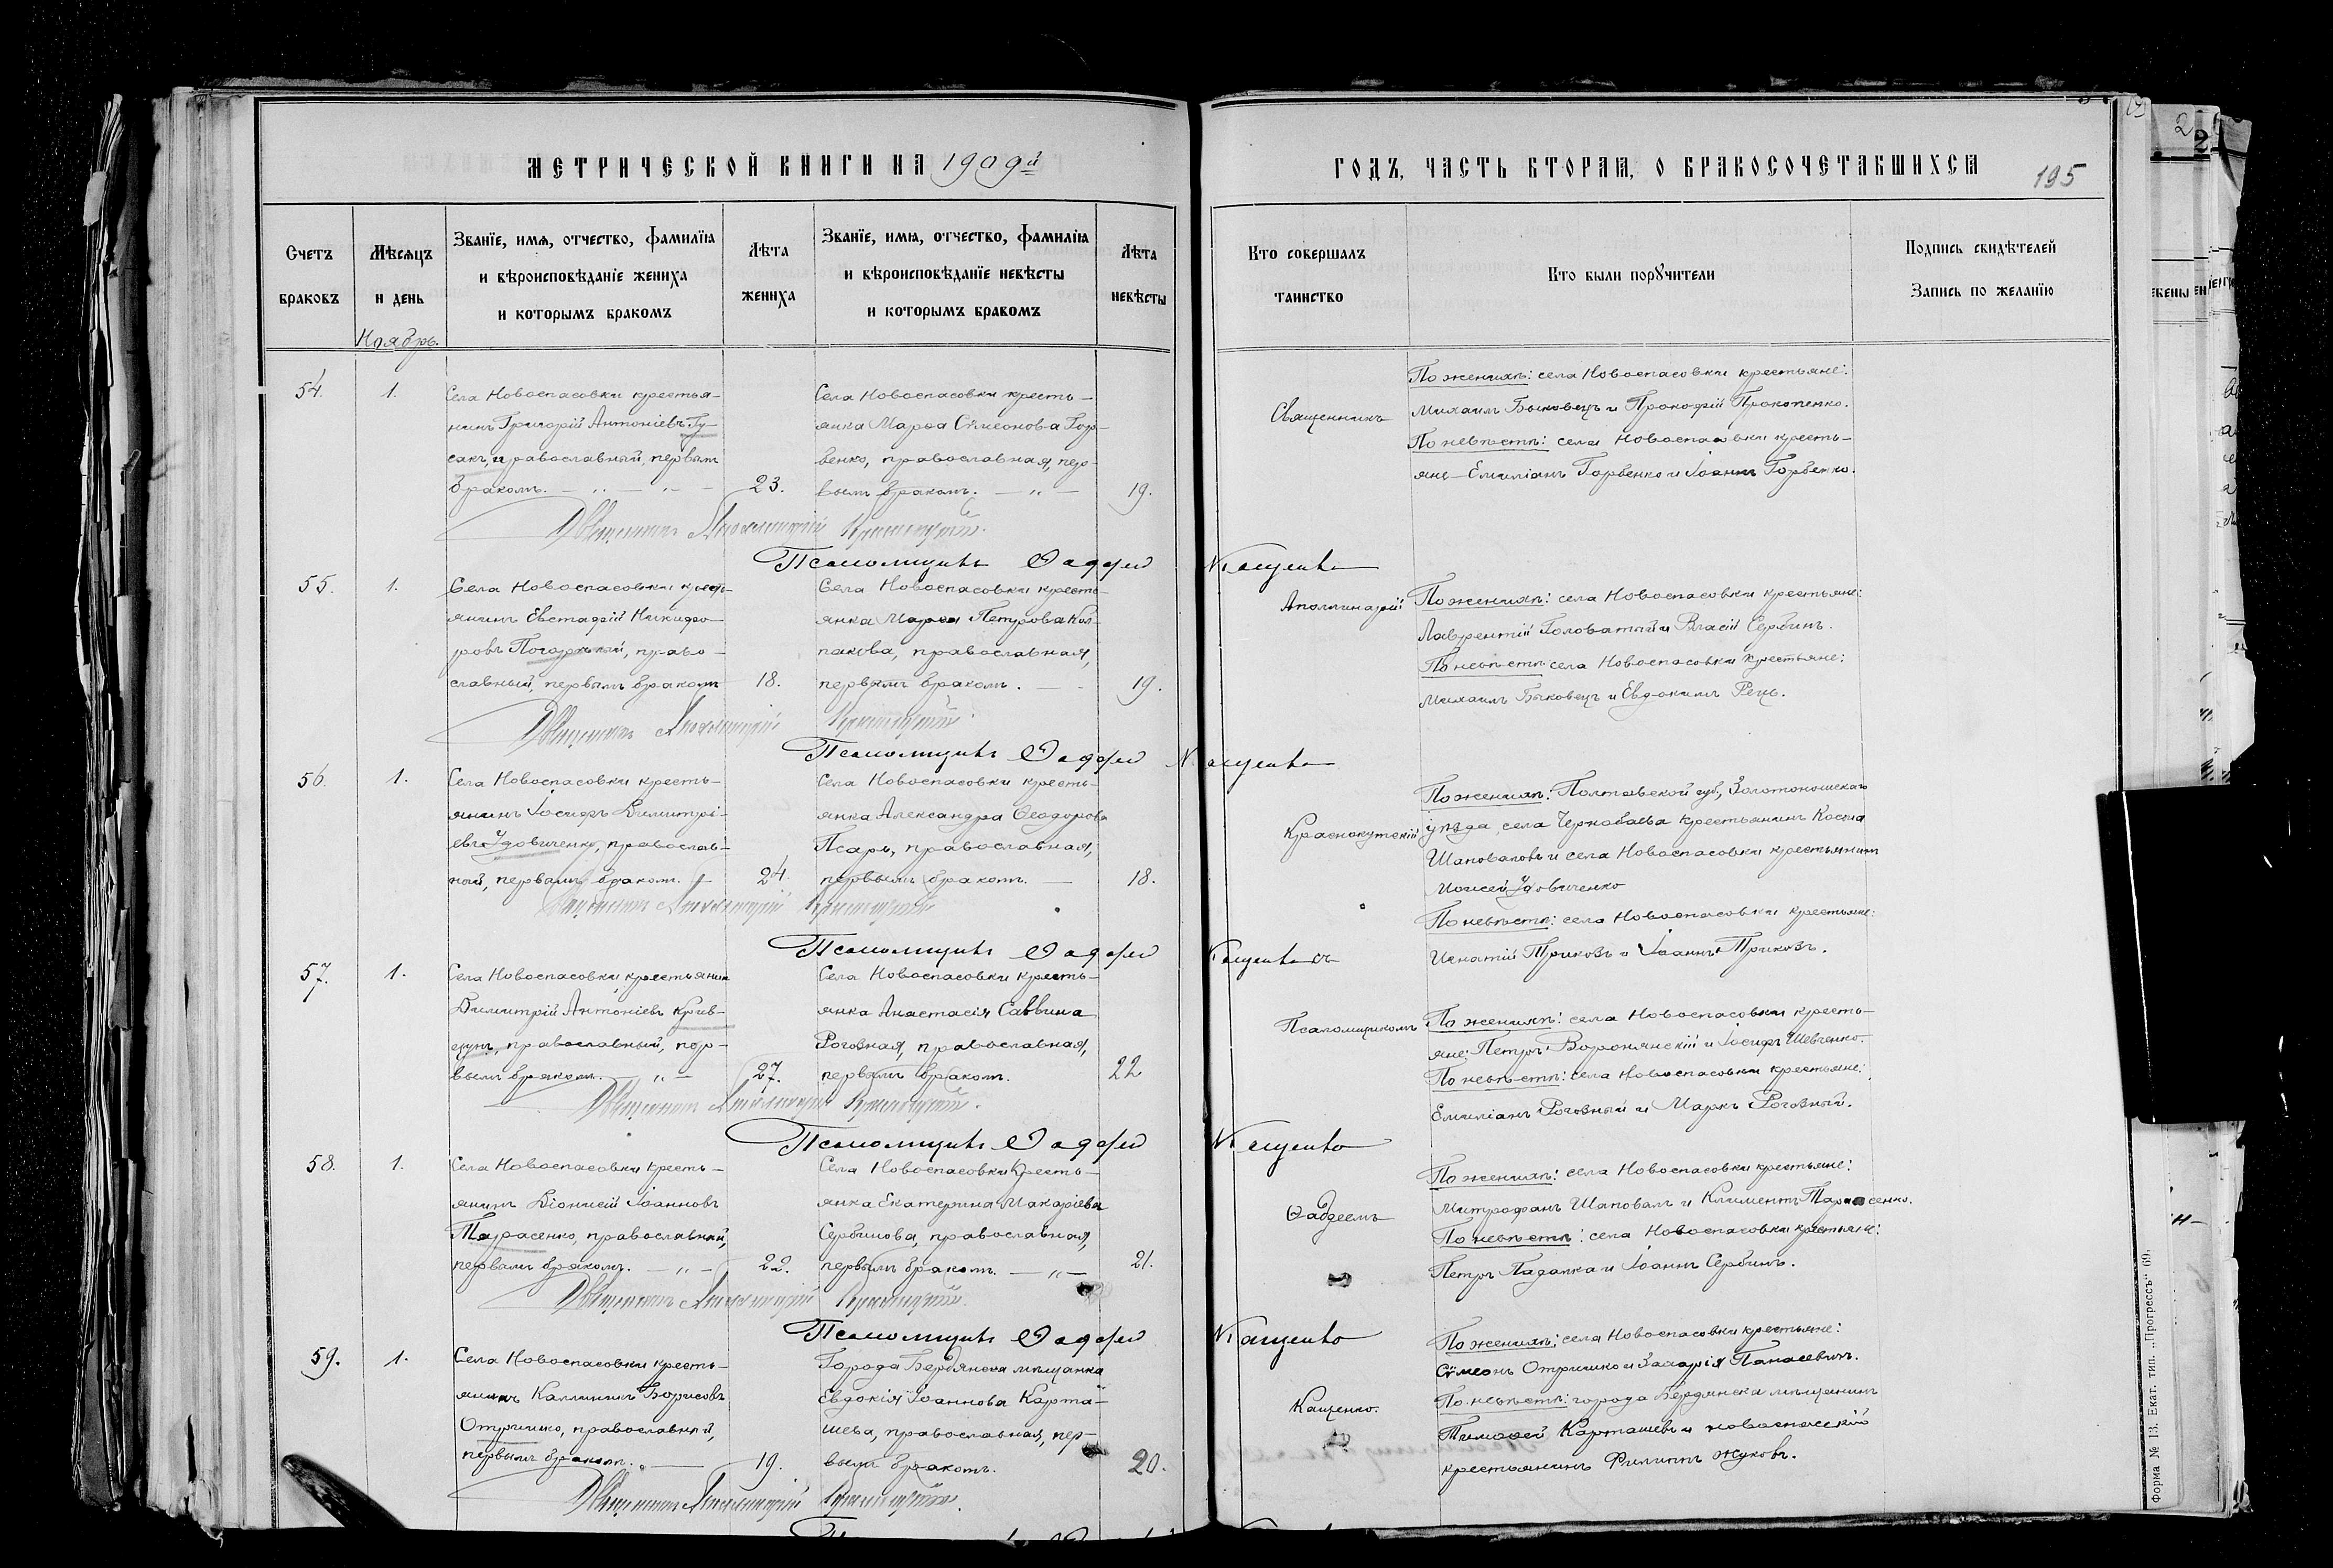 МЕТРИЧЕСКОЙ КНИГИ НА 1909й
ГОДЪ, ЧАСТЬ ВТОРАЯ, О БРАКОСОЧЕТАВШИХСЯ
195
Счетъ
браковъ
Мѣсяцъ
и день
Званїе, имѧ, отчество, фамилїѧ
и вѣроисповѣданїе жениха
и которымъ бракомъ
Лѣта
жениха
Званїе, имѧ, отчество, фамилїѧ
и вѣроисповѣданїе невѣсты
и которымъ бракомъ
Лѣта
невѣсты
Кто совершалъ
таинство
Кто были порꙋчители
Подпись свидѣтелей
Запись по желанїю
Ноябрь.
54.
1.
Села Новоспасовки крестья-
нинъ Григорій Антоніевъ Гу-
сакъ, православный, первымъ
бракомъ.
23.
Села Новоспасовки кресть-
янка Марѳа Сѵмеонова Гор-
венко, православная, пер-
вымъ бракомъ.
19.
Священникъ
По женихѣ: села Новоспасовки крестьяне:
Михаилъ Быковецъ и Прокофій Прокопенко.
По невѣстѣ: села Новоспасовки кресть-
яне Емиліанъ Горвенко и Іоаннъ Горвенко.
Священникъ Аполлинарій Краснокутскій.
Псаломщикъ Фаддей Кащенко
55.
1.
Села Новоспасовки кресть-
янинъ Евстафій Никифо-
ровъ Погорѣлый, право-
славный, первымъ бракомъ
18.
Села Новоспасовки кресть-
янка Марѳа Петрова Кол-
пакова, православная,
первымъ бракомъ.
19.
Аполлинарій
По женихѣ: села Новоспасовки крестьяне:
Лаврентій Головатый и Власій Сербинъ.
По невѣстѣ села Новоспасовки крестьяне:
Михаилъ Быковецъ и Евдокимъ Рець.
Священникъ Аполлинарій Краснокутскій.
Псаломщикъ Фаддей Кащенко
56.
1.
Села Новоспасовки кресть-
янинъ Іосифъ Димитрі-
евъ Удовиченко, православ-
ный, первымъ бракомъ.
24.
Села Новоспасовки кресть-
янка Александра Ѳеодорова
Псарь, православная,
первымъ бракомъ.
18.
Краснокутскій
По женихѣ: Полтавской губ., Золотоношскаго
уѣзда, села Чернобаева крестьянинъ Косма
Шаповаловъ и села Новоспасовки крестьянинъ
Моисей Удовиченко
По невѣстѣ: села Новоспасовки крестьяне:
Игнатій Триковъ и Іоаннъ Триковъ.
Священникъ Аполлинарій Краснокутскій
Псаломщикъ Фаддей Кащенко
57.
1.
Села Новоспасовки крестьянинъ
Димитрій Антоніевъ Крив-
цунъ, православный, пер-
вымъ бракомъ.
27.
Села Новоспасовки кресть-
янка Анастасія Саввина
Роговная, православная,
первымъ бракомъ.
22
Псаломщикомъ
По женихѣ: села Новоспасовки кресть-
яне: Петръ Воронянскій и Іосифъ Шевченко.
По невѣстѣ: села Новоспасовки крестьяне:
Емиліанъ Роговный и Маркъ Роговный.
Священникъ Аполлинарій Краснокутскій.
Псаломщикъ Фаддей Кащенко
58.
1.
Села Новоспасовки кресть-
янинъ Діонисій Іоанновъ
Тарасенко, православный,
первымъ бракомъ.
22.
Села Новоспасовки кресть-
янка Екатерина Макаріева
Сербинова, православная,
первымъ бракомъ.
21.
Ѳаддеемъ
По женихѣ: села Новоспасовки крестьяне:
Митрофанъ Шаповалъ и Климентъ Тарасенко.
По невѣстѣ: села Новоспасовки крестьяне:
Петръ Падалка и Іоаннъ Сербинъ.
Священникъ Аполлинарій Краснокутскій.
Псаломщикъ Фаддей Кащенко
59.
1.
Села Новоспасовки кресть-
янинъ Каллиникъ Борисовъ
Отришко, православный,
первымъ бракомъ.
19.
Города Бердянска мѣщанка
Евдокія Іоаннова Карта-
шева, православная, пер-
вымъ бракомъ.
20.
Кащенко.
По женихѣ: села Новоспасовки крестьяне:
Сѵмеонъ Отришко и Захарія Панасевичъ.
По невѣстѣ: города Бердянска мѣщанинъ
Тимоѳей Карташевъ и новоспасскій
крестьянинъ Филиппъ Жуковъ.
Священникъ Аполлинарій Краснокутскій.
Форма № 13. Екат. тип. „Прогрессъ" 69.